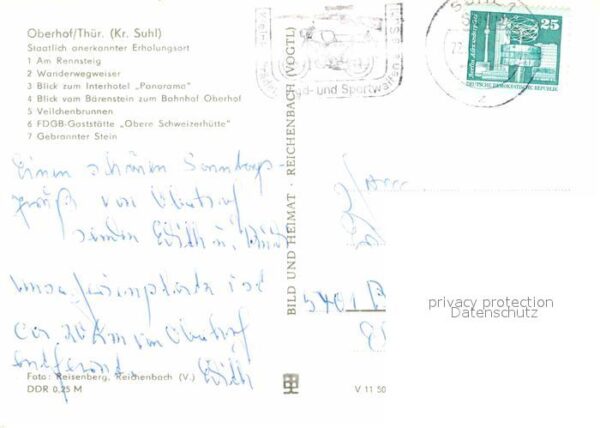 Oberhof/Thür. (Kr. Suhl)
Staatlich anerkannter Erholungsort
1 Am Rennsteig
2 Wanderwegweiser
3 Blick zum Interhotel „Panorama“
4 Blick vom Bärenstein zum Bahnhof Oberhof
5 Veilchenbrunnen
6 FDGB-Gaststätte „Obere Schweizerhütte“
7 Gebrannter Stein
Einen schönen Sonntags-
gruß von Oberhof
senden
ist
ca. 20 Km von Oberhof
entfernt.
Foto: Reisenberg, Reichenbach (V.)
DDR 0,25 M
BILD UND HEIMAT · REICHENBACH (VOGTL)
V 11 50
gd- und Sportwaffen
SUHL 1
25
Berlin, Alexanderplatz
DEUTSCHE DEMOKRATISCHE REPUBLIK
5401
privacy protection
Datenschutz